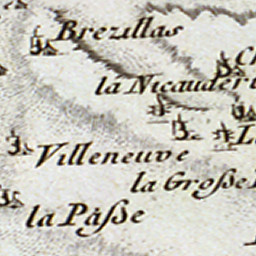 Brezillas
la Nicauderi
Villeneuve
la Große
la Pâße